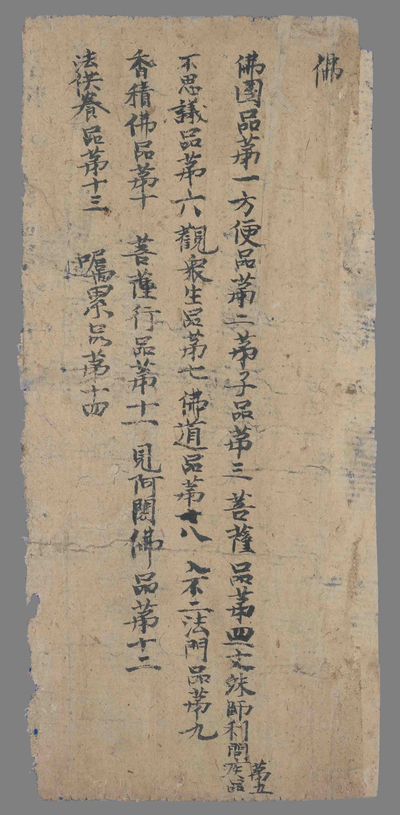 佛
佛國品第一方便品第二第子品第三菩薩品第四文殊師利問疾品第五
不思議品第六觀衆生品第七佛道品第十八入不二法門品第九
香積佛品第十 菩薩行品第十一見阿閦佛品第十二
法供養品第十三 囑累品第十四